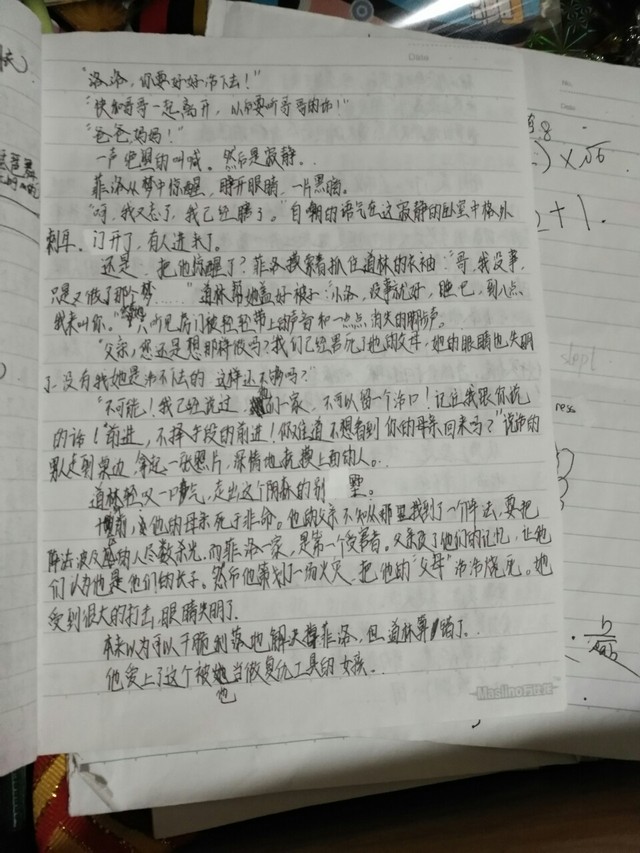 “洛洛，你要好好活下去！”
“快和哥哥一起离开，以后要听哥哥的话！”
“爸爸妈妈！”
一声凄厉的叫喊。然后是寂静。
菲洛从梦中惊醒，睁开眼睛，一片黑暗。
“呵，我又忘了，我已经瞎了。”自嘲的语气在这寂静的卧室中格外
刺耳。门开了，有人进来了。
还是 把他惊醒了？菲洛摸索着抓住道林的衣袖：“哥，我没事，
只是又做了那个梦……”道林帮她盖好被子：“小洛，没事就好，睡吧，到八点
我来叫你。”听见房门被轻轻带上的声音和一点点消失的脚步声。
“父亲，您还是想那样做吗？我们已经害死了她的父母，她的眼睛也失明
了，没有我她是活不下去的 这样还不够吗？”
“不可能！我已经说过 们一家，不可以留一个活口！记住我跟你说
的话！“前进，不择手段的前进！你难道不想看到你的母亲回来吗？”说话的
男人走到桌边，拿起一张照片，深情地抚摸上面的人。
道林轻叹一口气，走出这个阴森的别墅。
十年前，他的母亲死于非命。他的父亲不知从那里找到了一个阵法，要把
阵法波及的人尽数杀光。而菲洛一家，是第一个受害者。父亲改了他们的记忆，让他
们以为他是他们的长子。然而他策划了一场火灾，把他的“父母”活活烧死。她
受到很大的打击，眼睛失明了。
本来以为可以干脆利落地解决掉菲洛，但道林算错了。
他爱上了这个被他当做复仇工具的女孩。
也
Maglino
8
) × √6
2+1.
ress
b